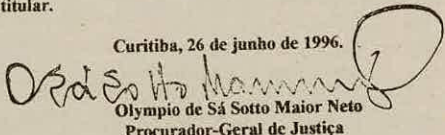 titular.
Curitiba, 26 de junho de 1996.
Olympio de Sá Sotto Maior Neto
Procurador-Geral de Justiça